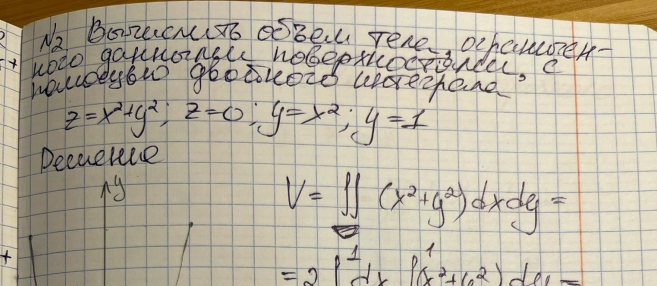 N2 Вычислить объём тела, ограничен-
ного данными поверхностями, с
помощью двойного интеграла
z=x²+y²; z=0; y=x²; y=1
Решение
y
V= ∬ (x²+y²)dxdy=
=2 ∫ 1 dx ∫ 1 (x²+y²) dy =